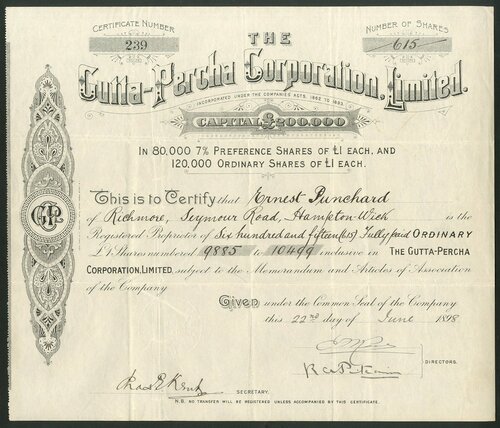 CERTIFICATE NUMBER
239
NUMBER OF SHARES
615
THE
Gutta-Percha Corporation, Limited.
INCORPORATED UNDER THE COMPANIES ACTS, 1862 TO 1893.
CAPITAL £200,000
IN 80,000 7% PREFERENCE SHARES OF £1 EACH, AND
120,000 ORDINARY SHARES OF £1 EACH.
This is to Certify that Ernest Punchard
of Richmore, Seymour Road, Hampton-Wick is the
Registered Proprietor of Six hundred and fifteen (615) Fully paid ORDINARY
£1 Shares numbered 9885 to 10499 inclusive in THE GUTTA-PERCHA
CORPORATION, LIMITED, subject to the Memorandum and Articles of Association
of the Company
Given under the Common Seal of the Company
this 22nd day of June 1898
DIRECTORS.
SECRETARY.
N.B. NO TRANSFER WILL BE REGISTERED UNLESS ACCOMPANIED BY THIS CERTIFICATE.